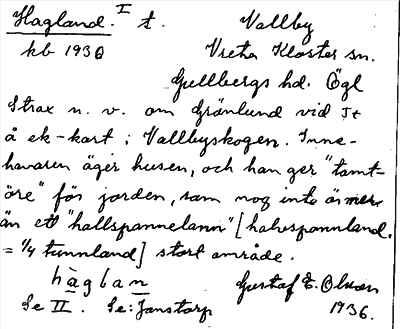 Hagland. I t. Vallby
kb 1930 Vreta Kloster sn.
Gullbergs hd. Ögl
Strax n. v. om Grönlund vid J+
å ek-kart i Vallbyskogen. Inne-
havaren äger husen, och han ger "tomt-
öre" för jorden, som nog inte är mer
än ett "hallspannelann" [halvspannland.
= 1/4 tunnland] stort område.
hàglan Gustaf E. Olsson
Se II. Se: Janstorp 1936.